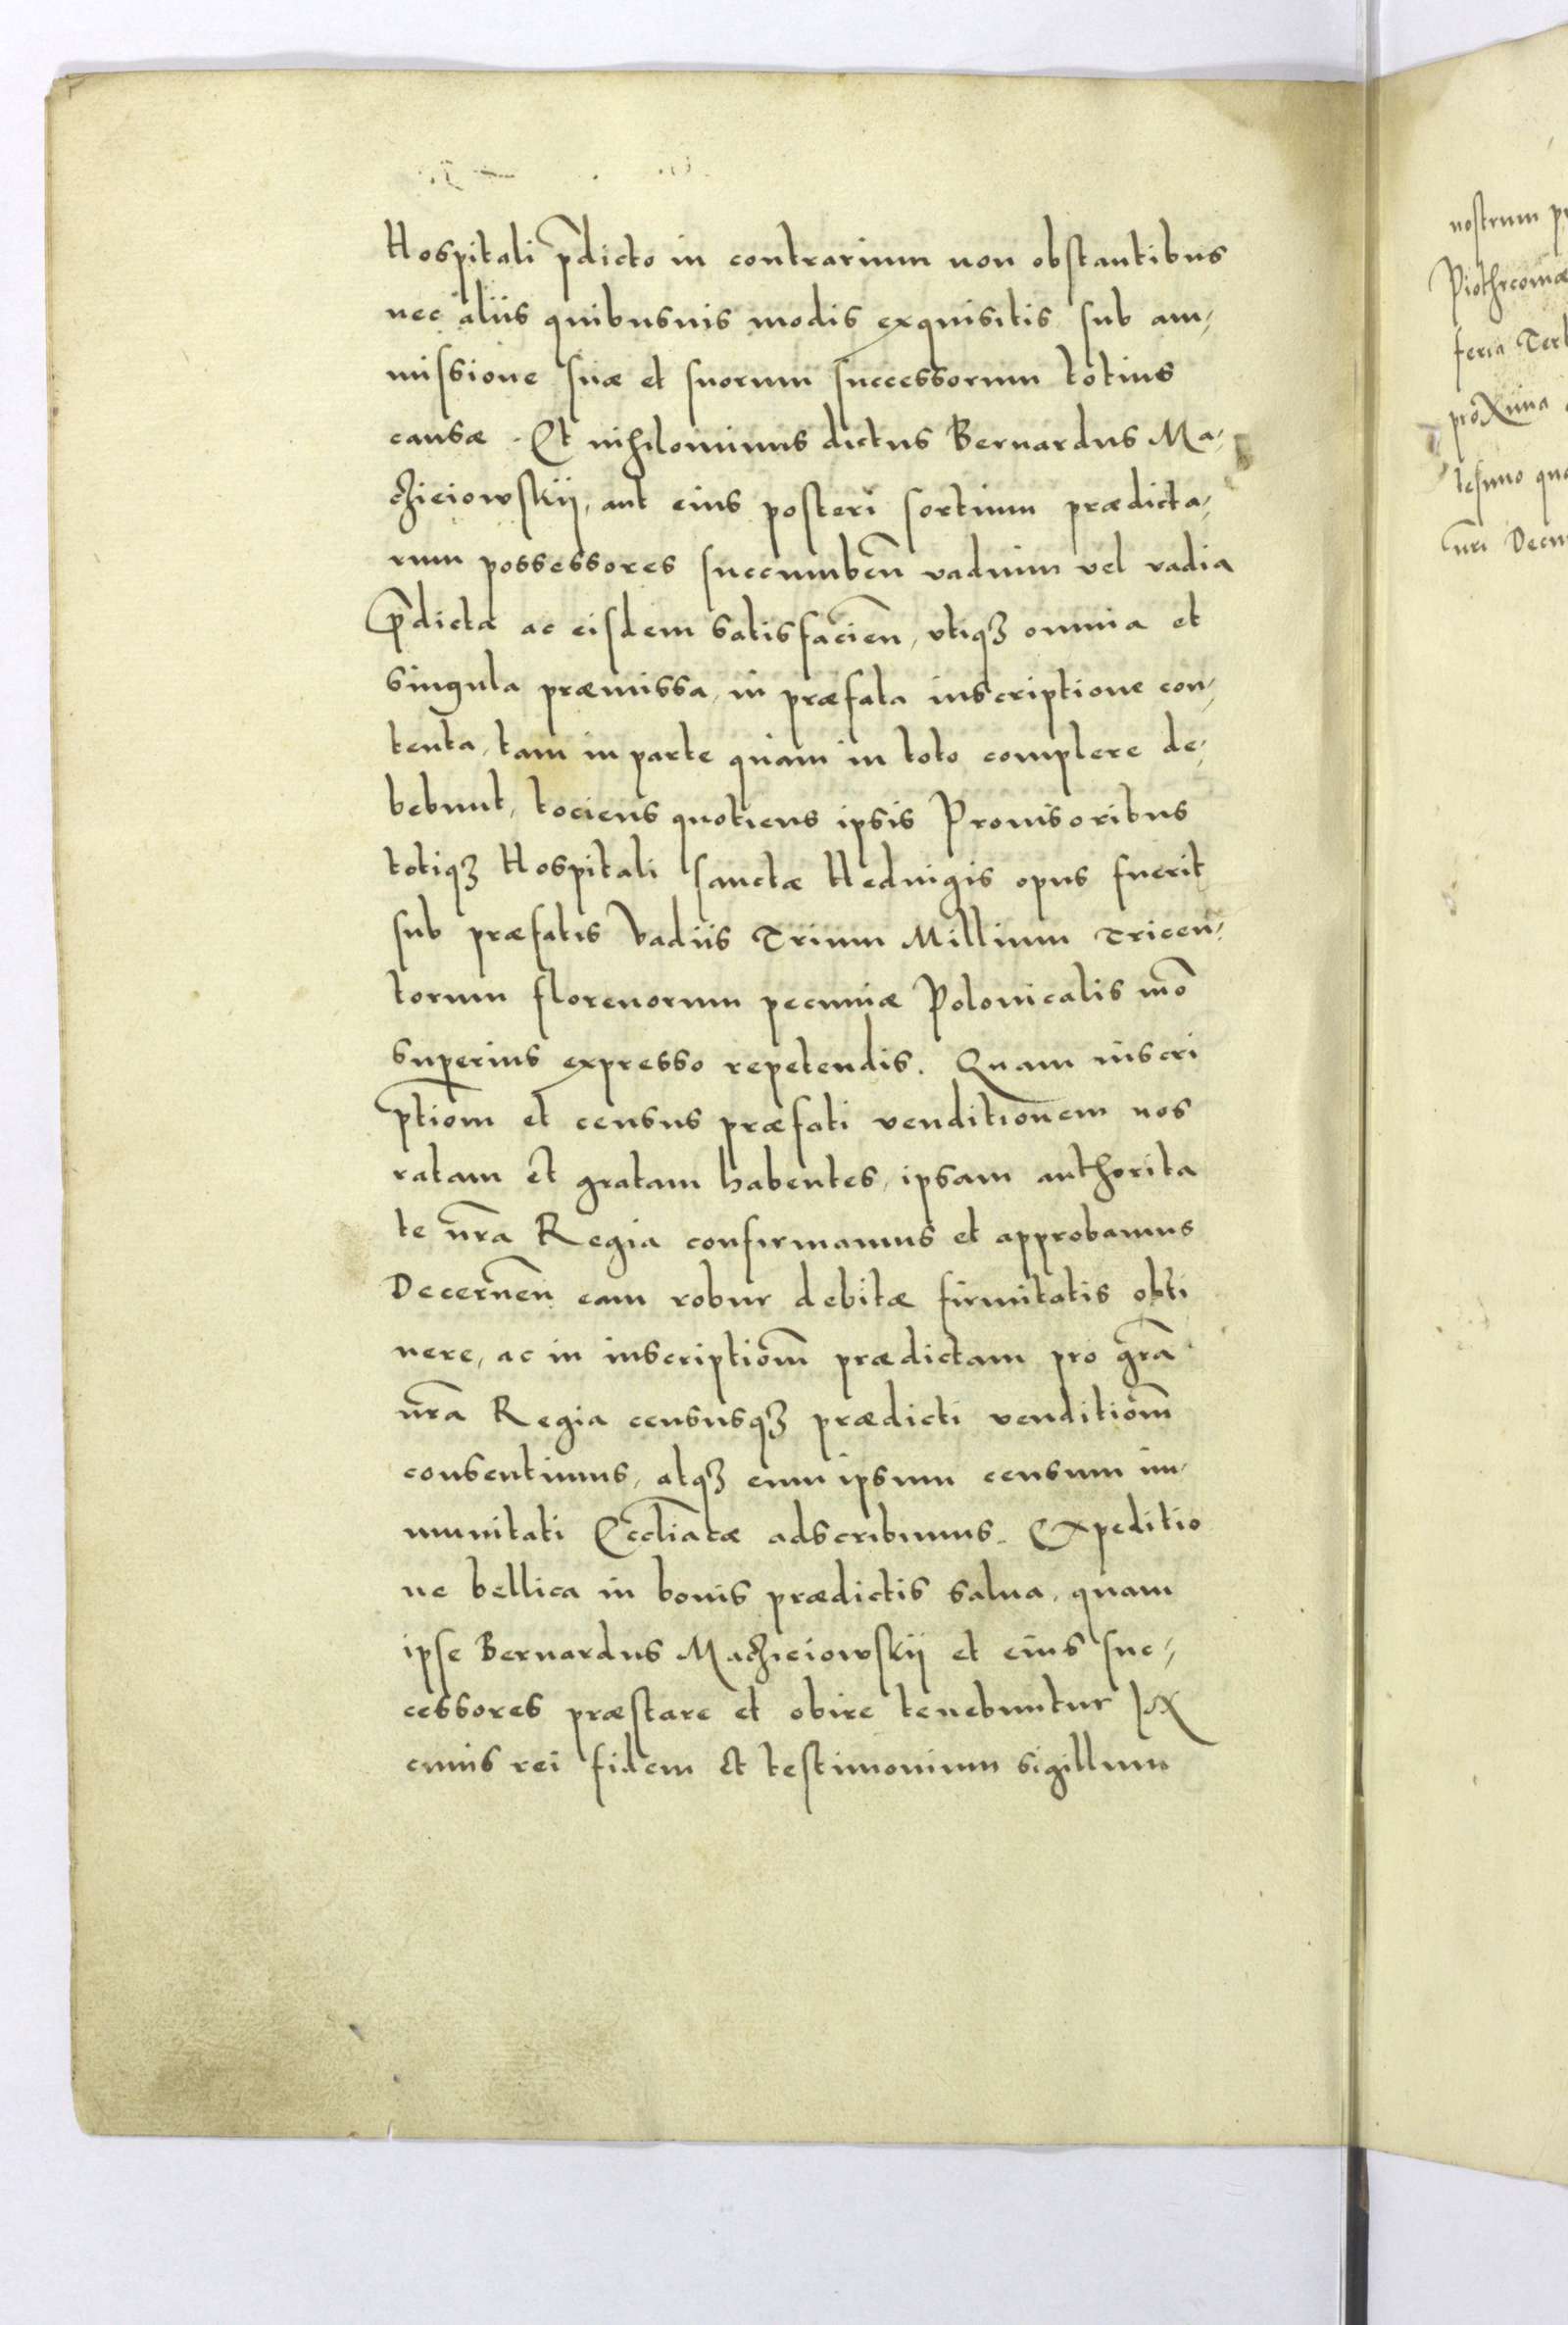 Hospitali p̄dicto in contrarium non obstantibus
nec aliis quibusuis modis exquisitis sub am-
missione suæ et suorum successorum totius
causæ. Et nihilominus dictus Bernardus Ma-
chieiowskij, aut eius posteri sortium prædicta-
rum possessores succumbeñ vadium vel vadia
p̄dicta ac eisdem satisfacieñ, vtiqꝫ omnia et
singula præmissa, in præfata inscriptione con-
tenta, tam in parte quàm in toto complere de-
bebunt, tociens quotiens ipsis Prouisoribus
totiqꝫ Hospitali sanctæ Heduigis opus fuerit
sub præfatis Vadiis Trium Millium Tricen-
torum florenorum pecuniæ Polonicalis mō
superius expresso repetendis. Quam inscri
ptiom̄ et census præfati venditionem nos
ratam et gratam habentes, ipsam authorita
te nr̄a Regia confirmamus et approbamus
Decerneñ eam robur debitæ firmitatis obti
nere, ac in inscriptiom̄ prædictam pro gr̄a
nr̄a Regia censusqꝫ prædicti venditiom̄
consentimus, atqꝫ eum ipsum censum im-
munitati Eccl̄iatæ adscribimus. Expeditio
ne bellica in bonis prædictis salua, quam
ipse Bernardus Machieiowskij et eius suc-
cessores præstare et obire tenebuntur IN
cuius rei fidem et testimonium sigillum
nostrum
feria
proxima